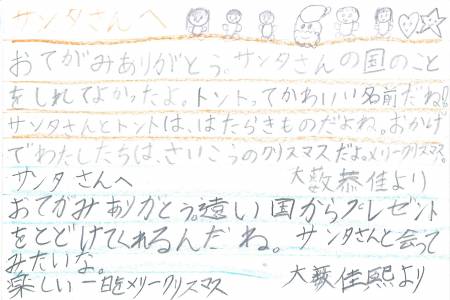 サンタさんへ
おてがみありがとう。サンタさんの国のこと
をしれてよかったよ。トントってかわいい名前だね!!
サンタさんとトントは、はたらきものだよね。おかげ
でわたしたちは、さいこうのクリスマスだよ。メリークリスマス。
大薮恭佳より
サンタさんへ
おてがみありがとう。遠い国からプレゼント
をとどけてくれるんだね。サンタさんと会って
みたいな。
楽しい一日をメリークリスマス
大薮佳熙より